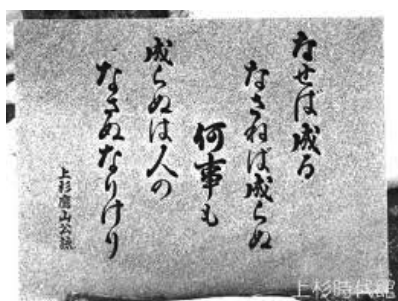 なせは成る
なさねば成らぬ
何事も
成らぬは人の
なさぬなりけり
上杉鷹山公詠
上杉時代館